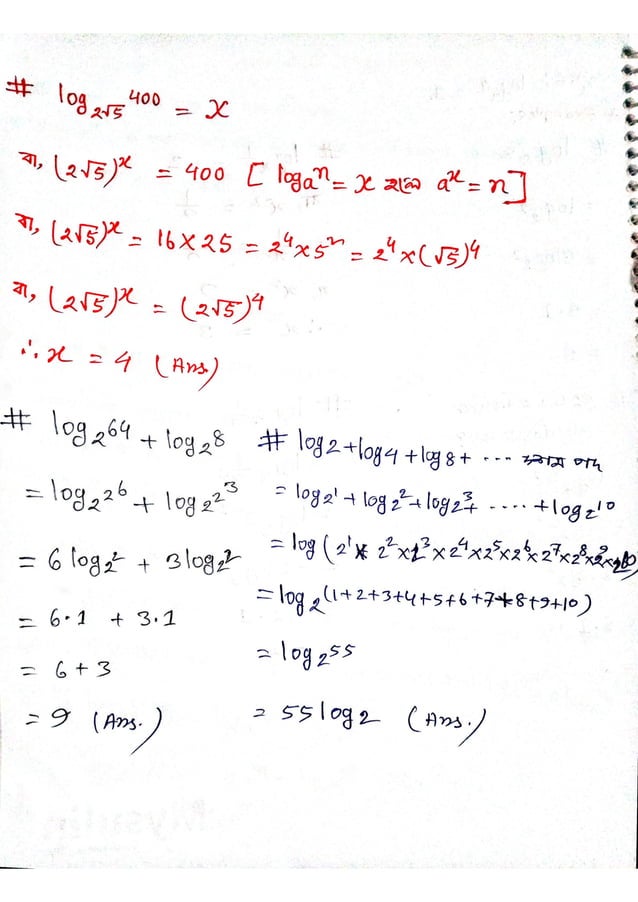 # log₂√₅ 400 = x
বা, (2√5)ˣ = 400 [ logₐn = x হলে aˣ = n ]
বা, (2√5)ˣ = 16 × 25 = 2⁴ × 5² = 2⁴ × (√5)⁴
বা, (2√5)ˣ = (2√5)⁴
∴ x = 4 (Ans.)
# log₂64 + log₂8
= log₂2⁶ + log₂2³
= 6 log₂2 + 3 log₂2
= 6·1 + 3·1
= 6 + 3
= 9 (Ans.)
# log2 + log4 + log8 + ... পদ
= log2¹ + log2² + log2³ + ..... + log2¹⁰
= log (2¹ × 2² × 2³ × 2⁴ × 2⁵ × 2⁶ × 2⁷ × 2⁸ × 2⁹ × 2¹⁰)
= log2⁽¹⁺²⁺³⁺⁴⁺⁵⁺⁶⁺⁷⁺⁸⁺⁹⁺¹⁰⁾
= log2⁵⁵
= 55 log2 (Ans.)